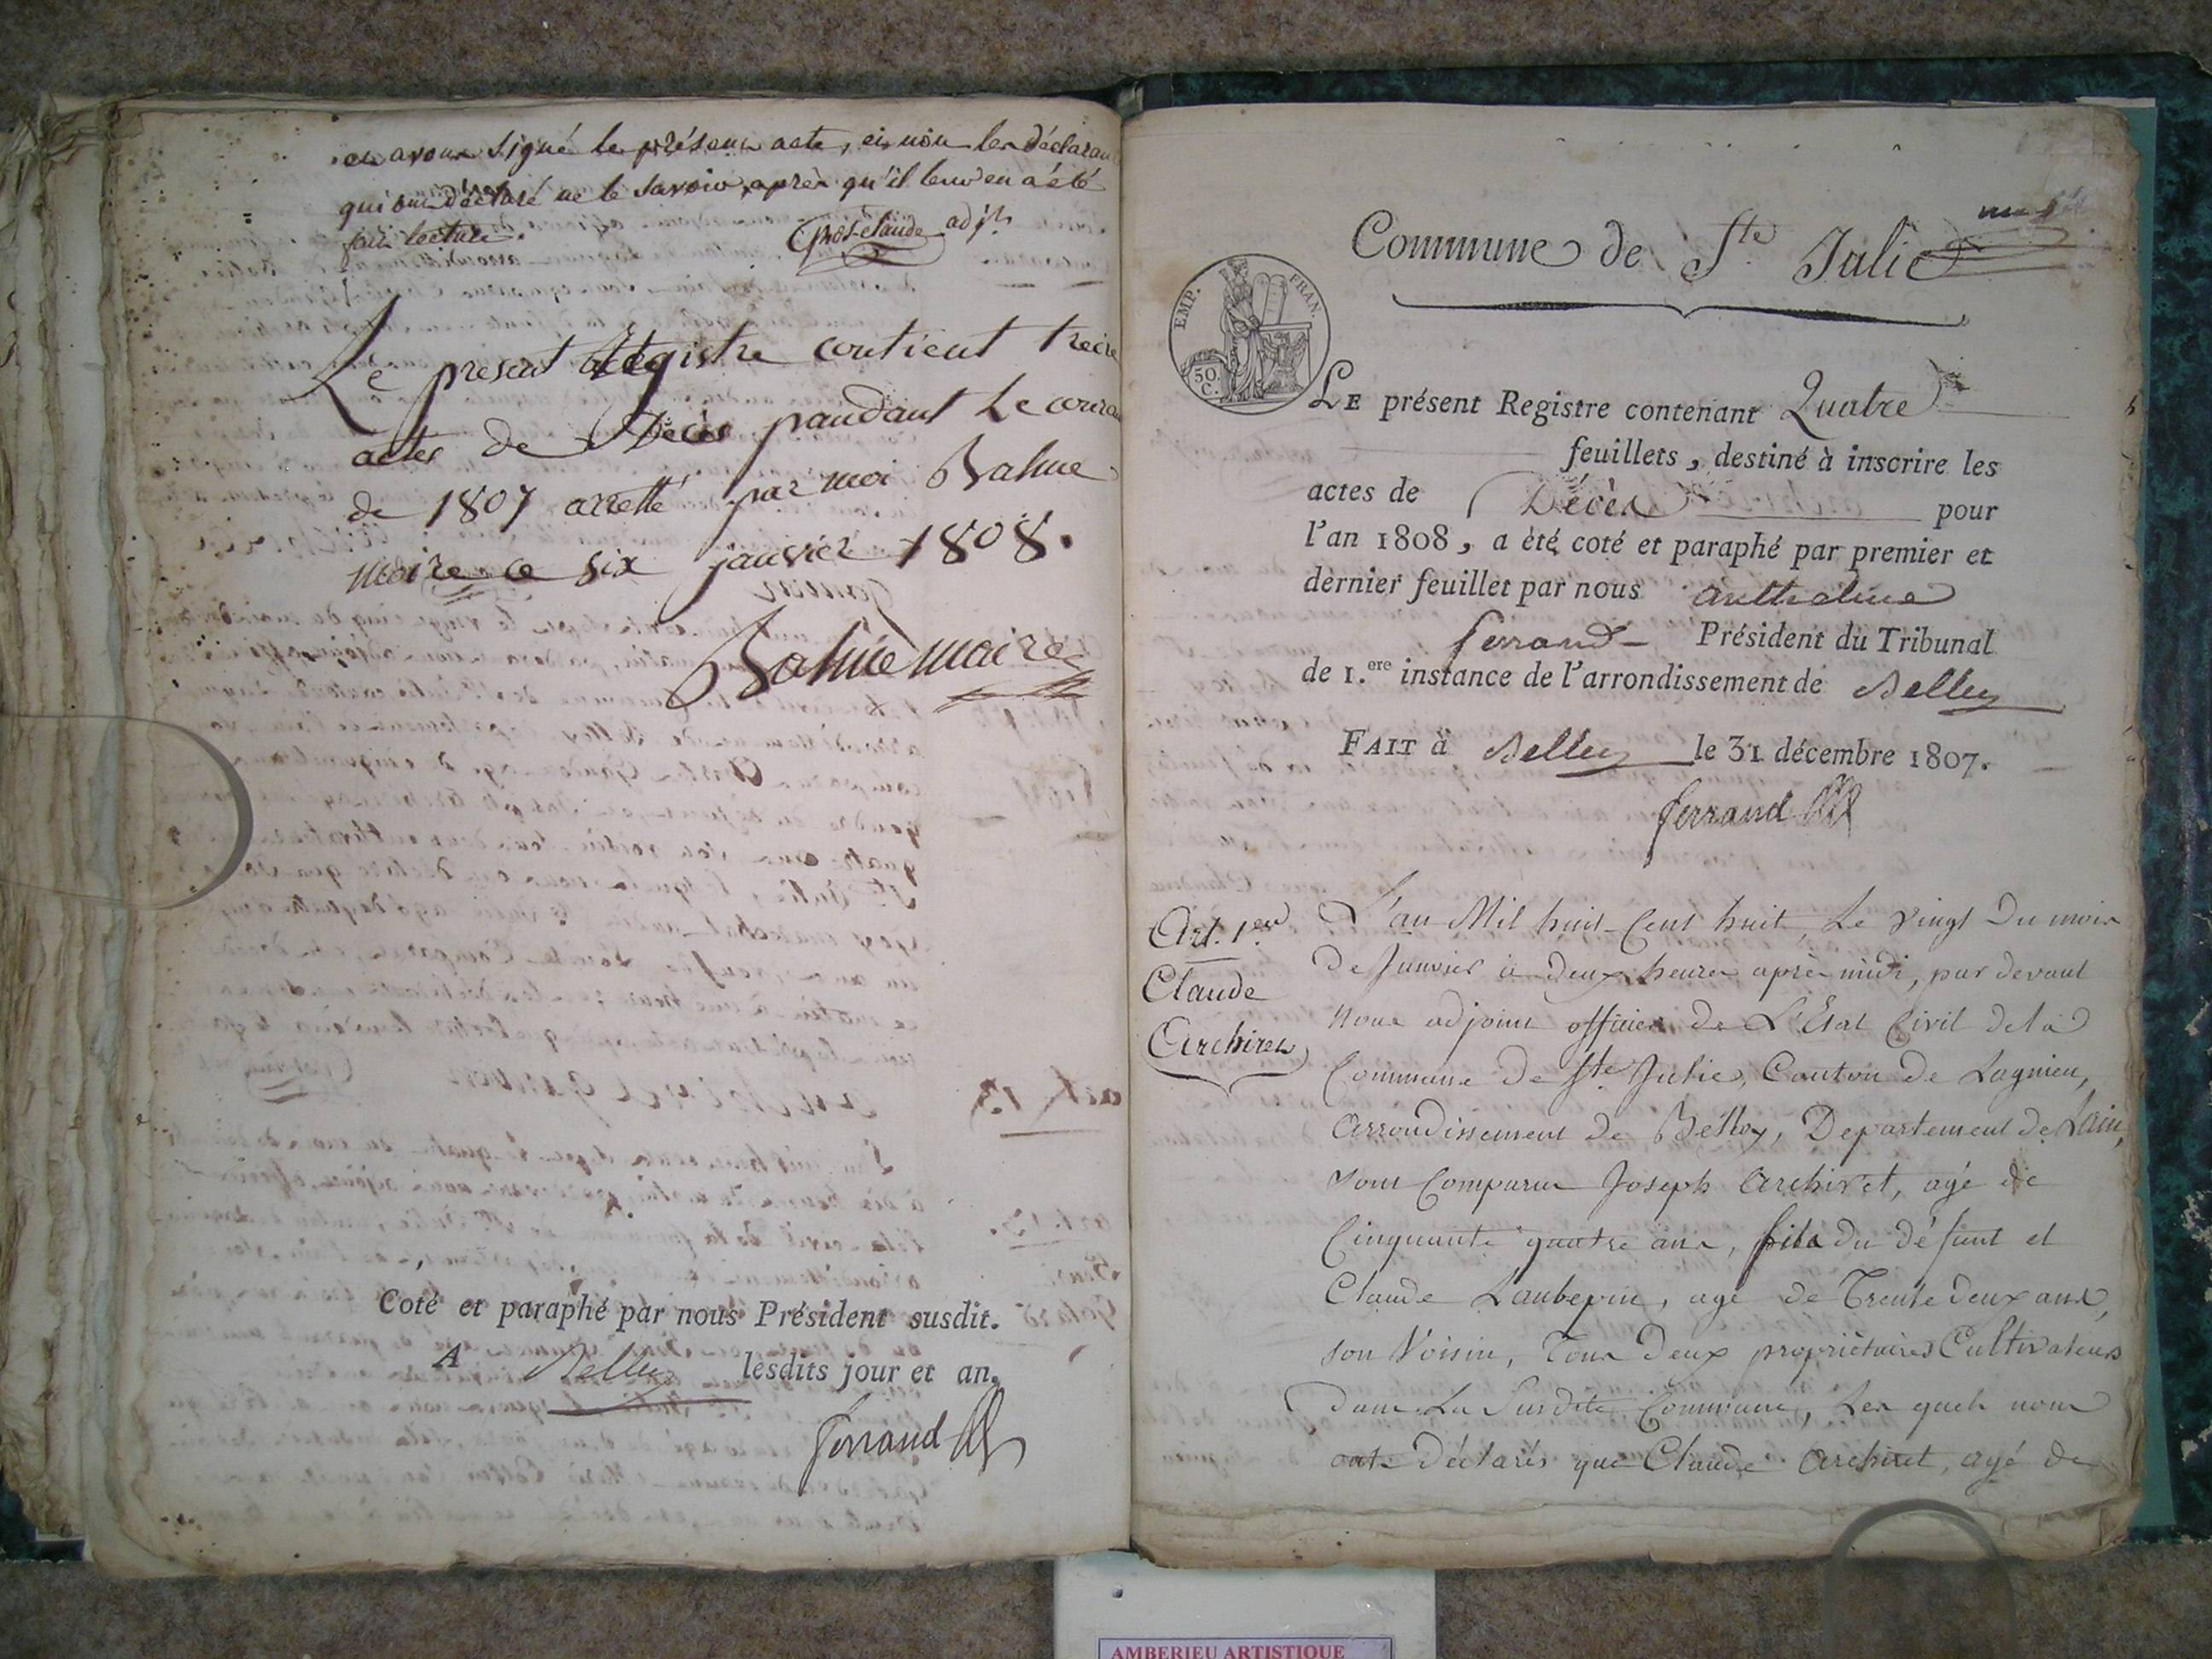 et avons signé le présent acte, et non les déclarans
qui ont déclaré ne le savoir, après qu'il leur en a été
fait lecture.
Gros-Claude adjt
Le present Registre contient treize
actes de Décès pandant le coura
de 1807 arretté par moi Bahue
maire ce six janvier 1808.
Bahue maire
Coté et paraphé par nous Président susdit.
A Belley lesdits jour et an.
ferrand
Commune de Ste Julie
EMP. FRAN.
50. C.
LE présent Registre contenant Quatre
feuillets, destiné à inscrire les
actes de Décès pour
l'an 1808, a été coté et paraphé par premier et
dernier feuillet par nous anthelme
ferrand Président du Tribunal
de 1.ere instance de l'arrondissement de Belley
FAIT à Belley le 31 décembre 1807.
ferrand
Art. 1er
Claude
Archiret
L'an Mil huit Cent huit, Le vingt Du mois
De Janvier à deux heures après midi, par devant
Nous adjoint officier De L'Etat Civil de la
Commune De Ste Julie, Canton De Lagnieu,
Arrondissement De Belley, Departement De Lain,
sont Comparus Joseph Archiret, agé de
Cinquante quatre ans, fils du défunt et
Claude Laubepin, agé de Trente deux ans,
son Voisin, Tous Deux propriétaires Cultivateurs
Dans La Susdite Commune, Les quels nous
ont Déclarés que Claude Archiret, agé de
AMBERIEU ARTISTIQUE